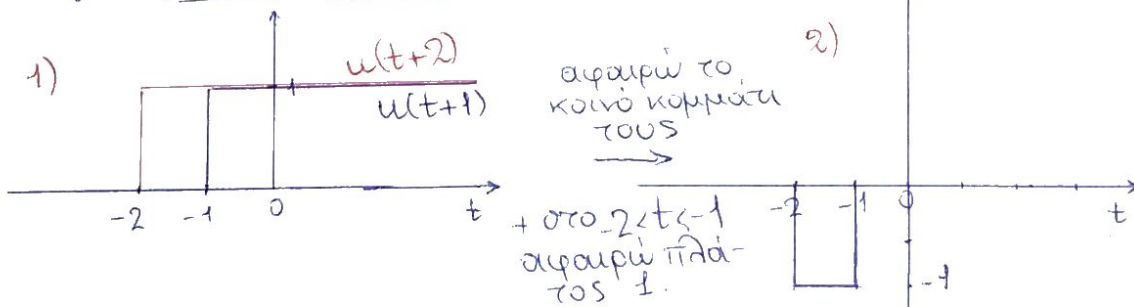 1)
u(t+2)
u(t+1)
-2 -1 0 t
αφαιρώ το
κοινό κομμάτι
τους
+ στο -2<t<-1
αφαιρώ πλά-
τος 1.
2)
-2 -1 0 t
-1